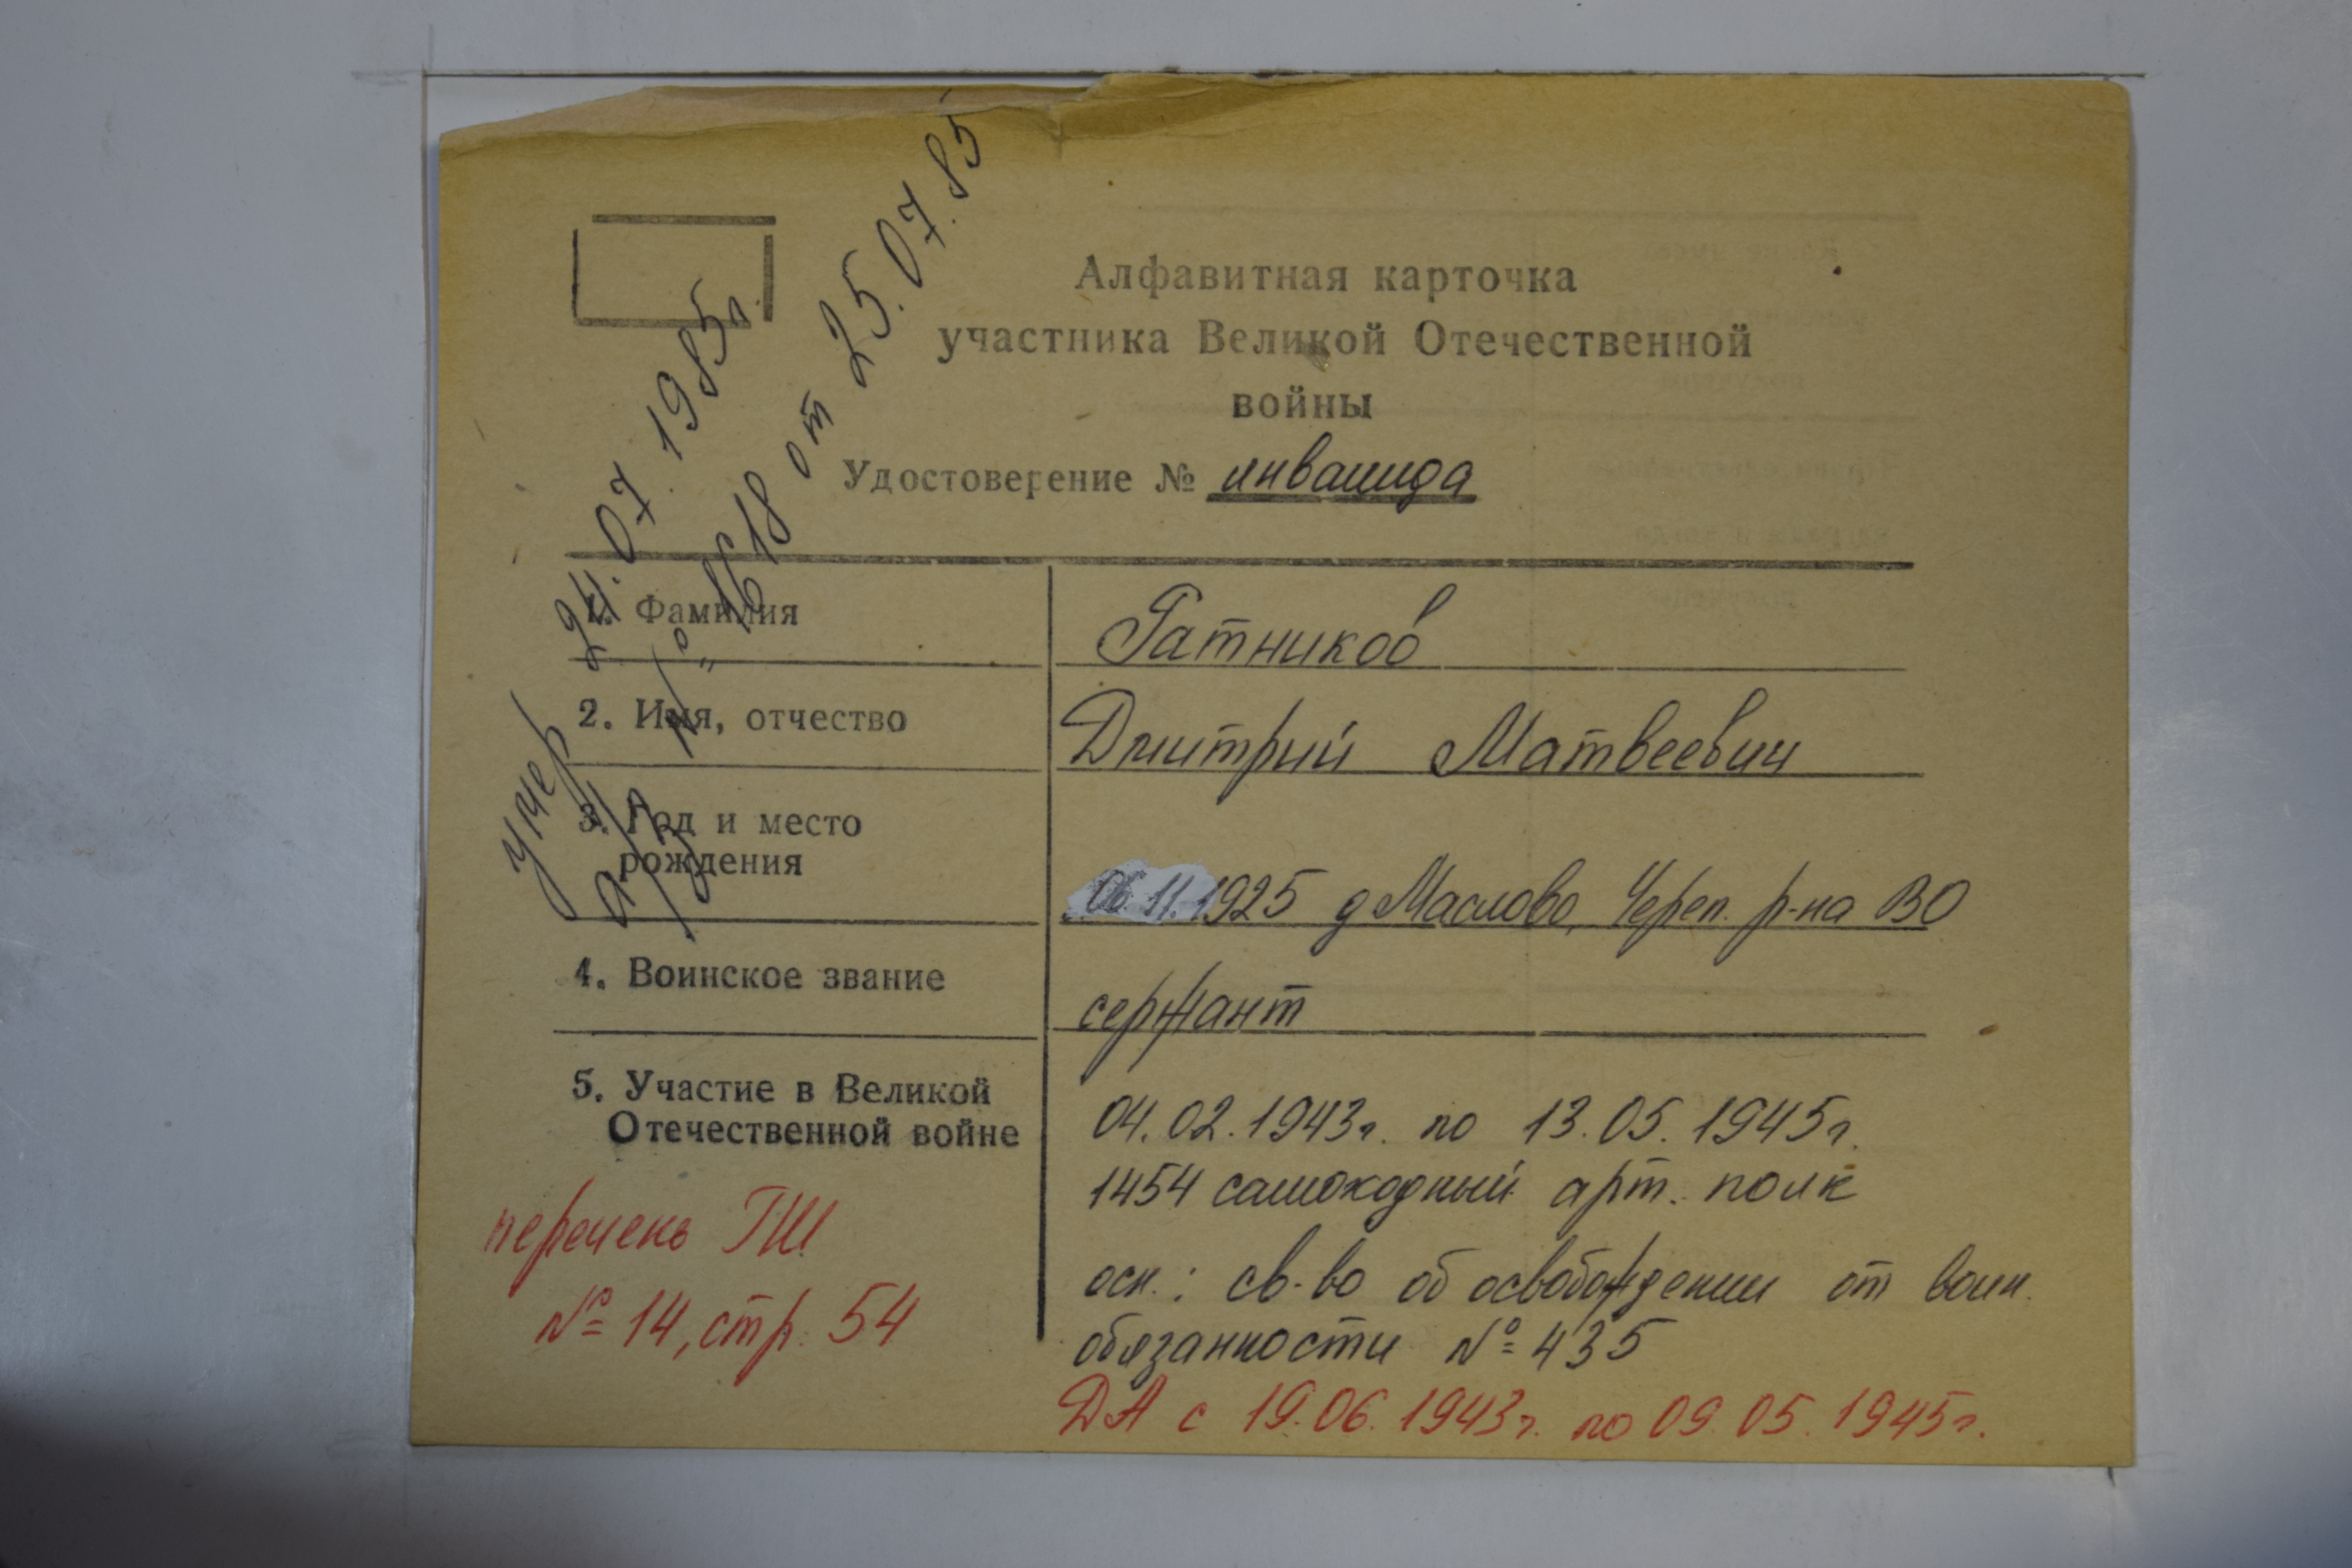 Алфавитная карточка
участника Великой Отечественной
войны
Удостоверение № инвалида
умер 24.07.1985г.
а/з № 1618 от 25.07.85
1. Фамилия
Ратников
2. Имя, отчество
Дмитрий Матвеевич
3. Год и место
рождения
06.11.1925 д Маслово, Череп. р-на ВО
4. Воинское звание
сержант
5. Участие в Великой
Отечественной войне
04.02.1943г. по 13.05.1945г.
1454 самоходный арт. полк
осн.: св-во об освобождении от воин.
обязанности № 435
ДА с 19.06.1943г. по 09.05.1945г.
перечень ГШ
№ 14, стр. 54